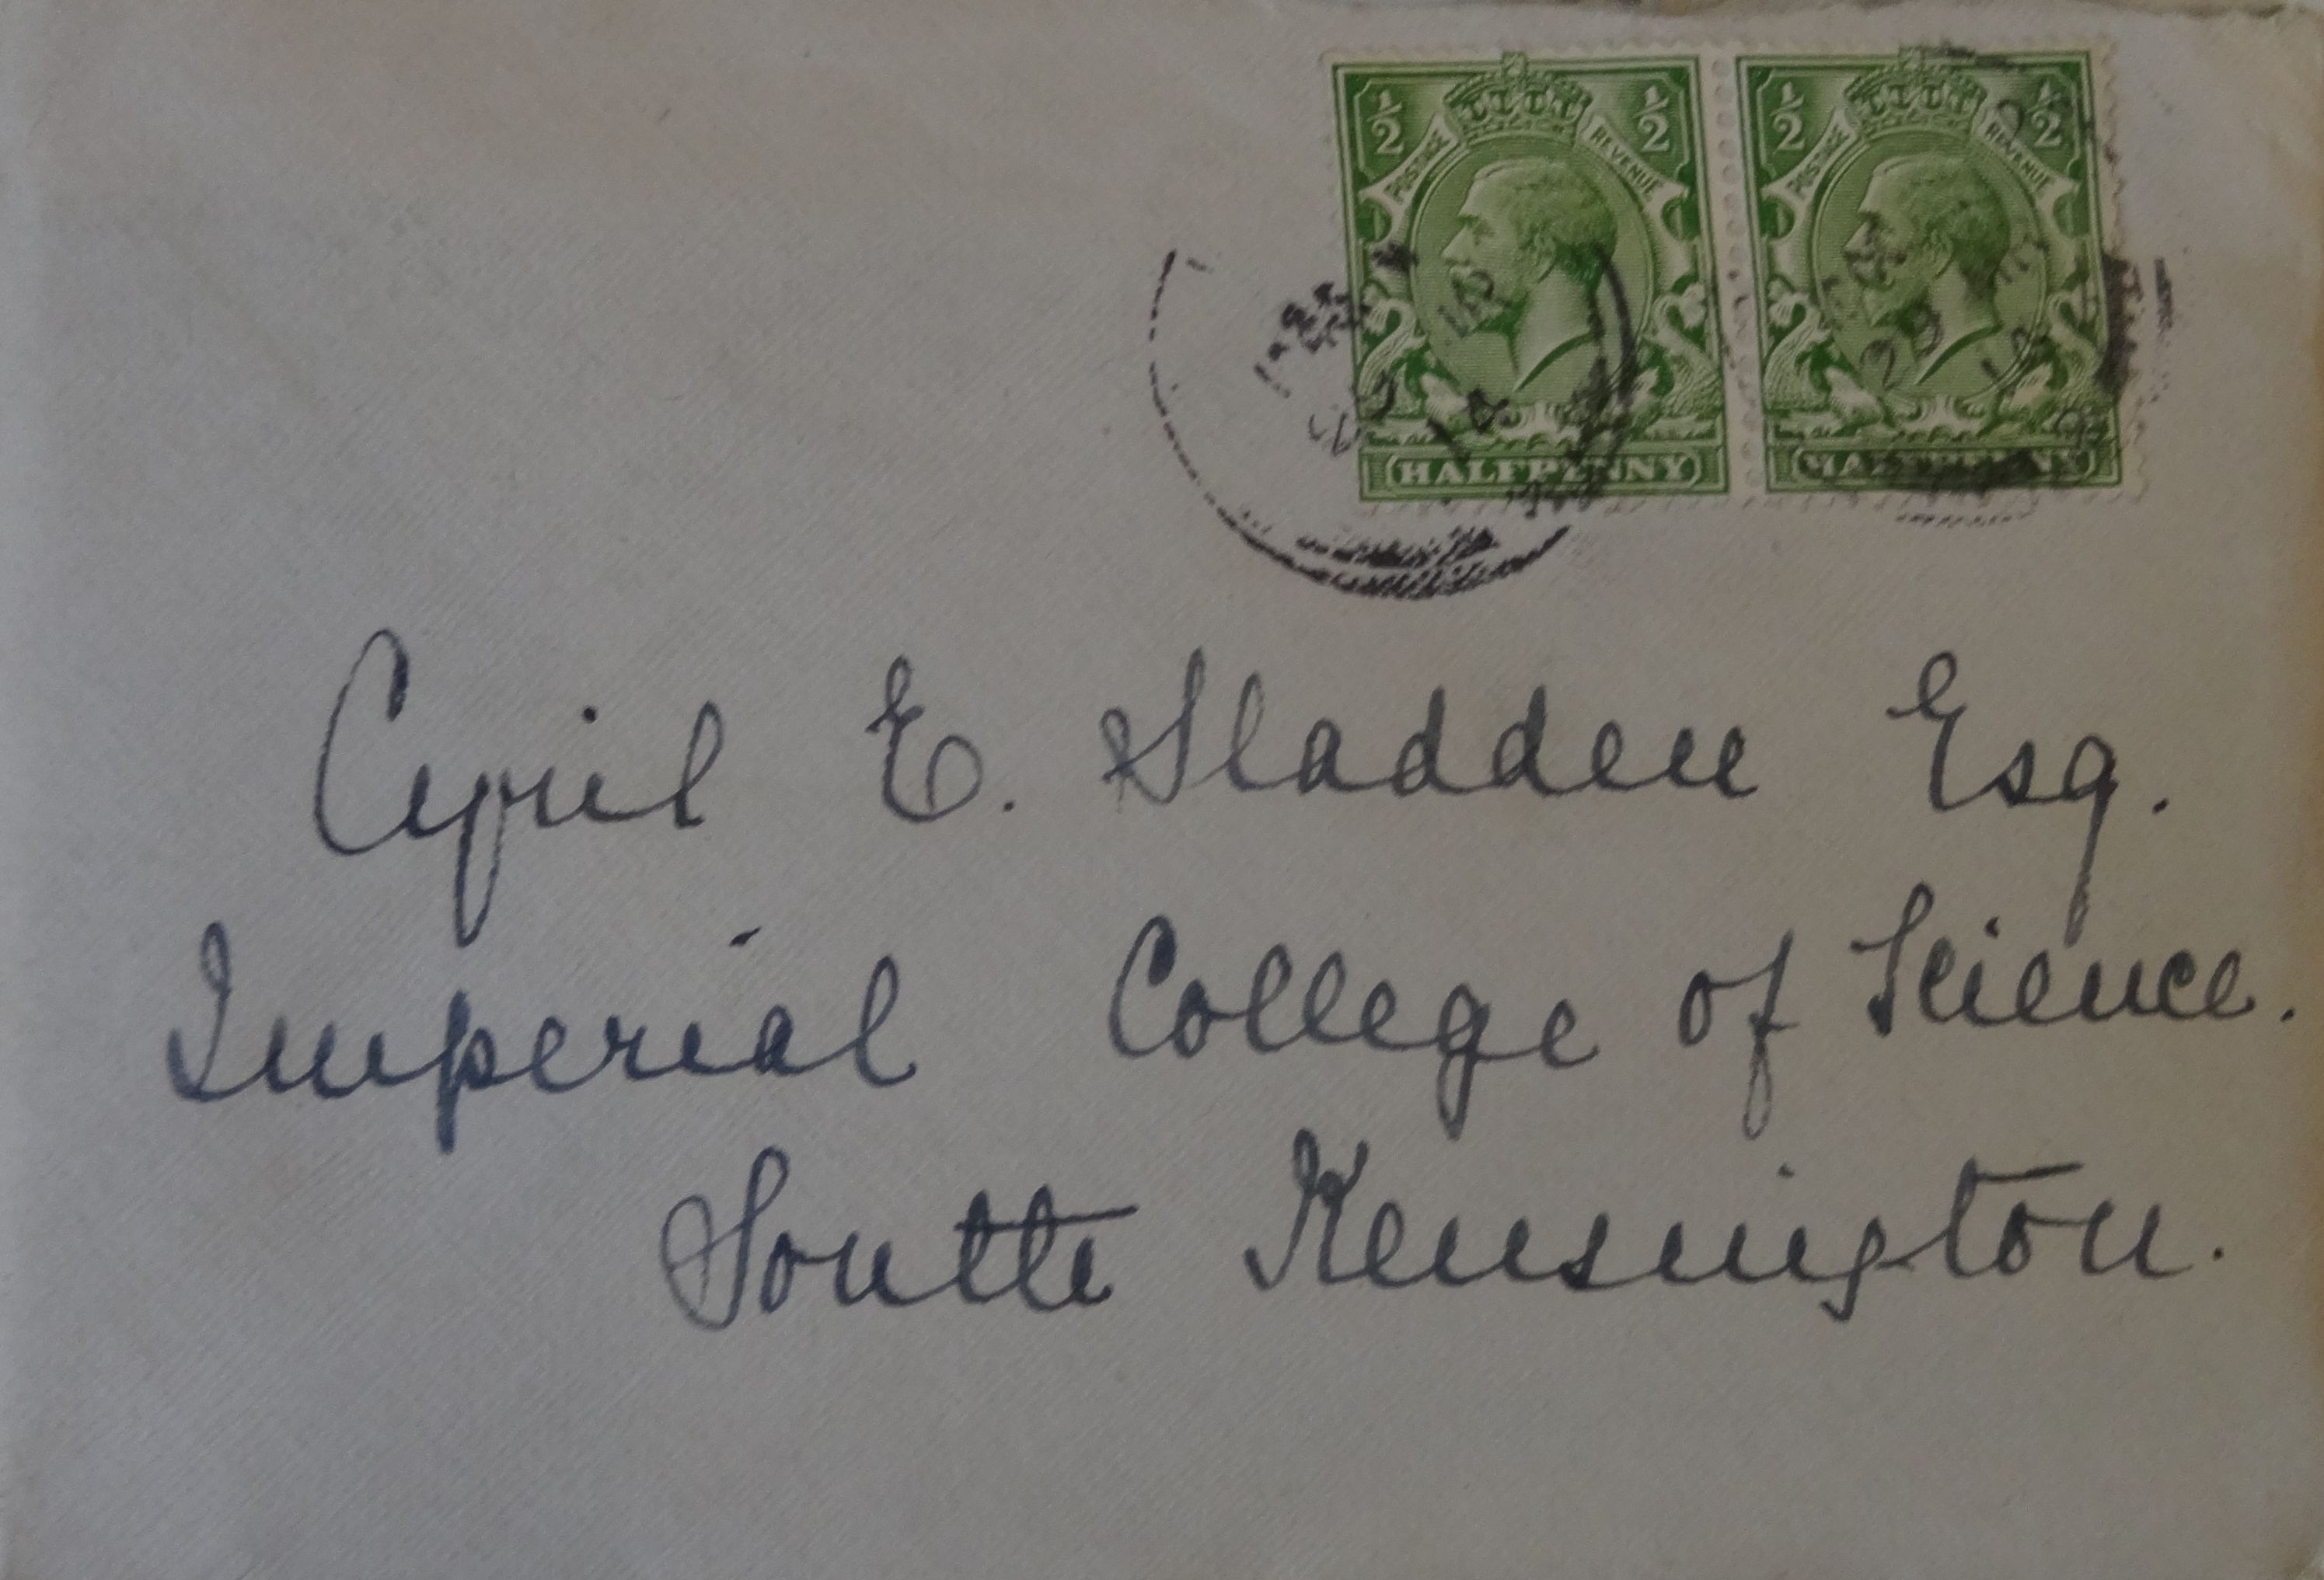 ½ ½ ½ ½
POSTAGE REVENUE POSTAGE REVENUE
HALFPENNY HALFPENNY
14
Cyril E. Sladden Esq.
Imperial College of Science.
South Kensington.